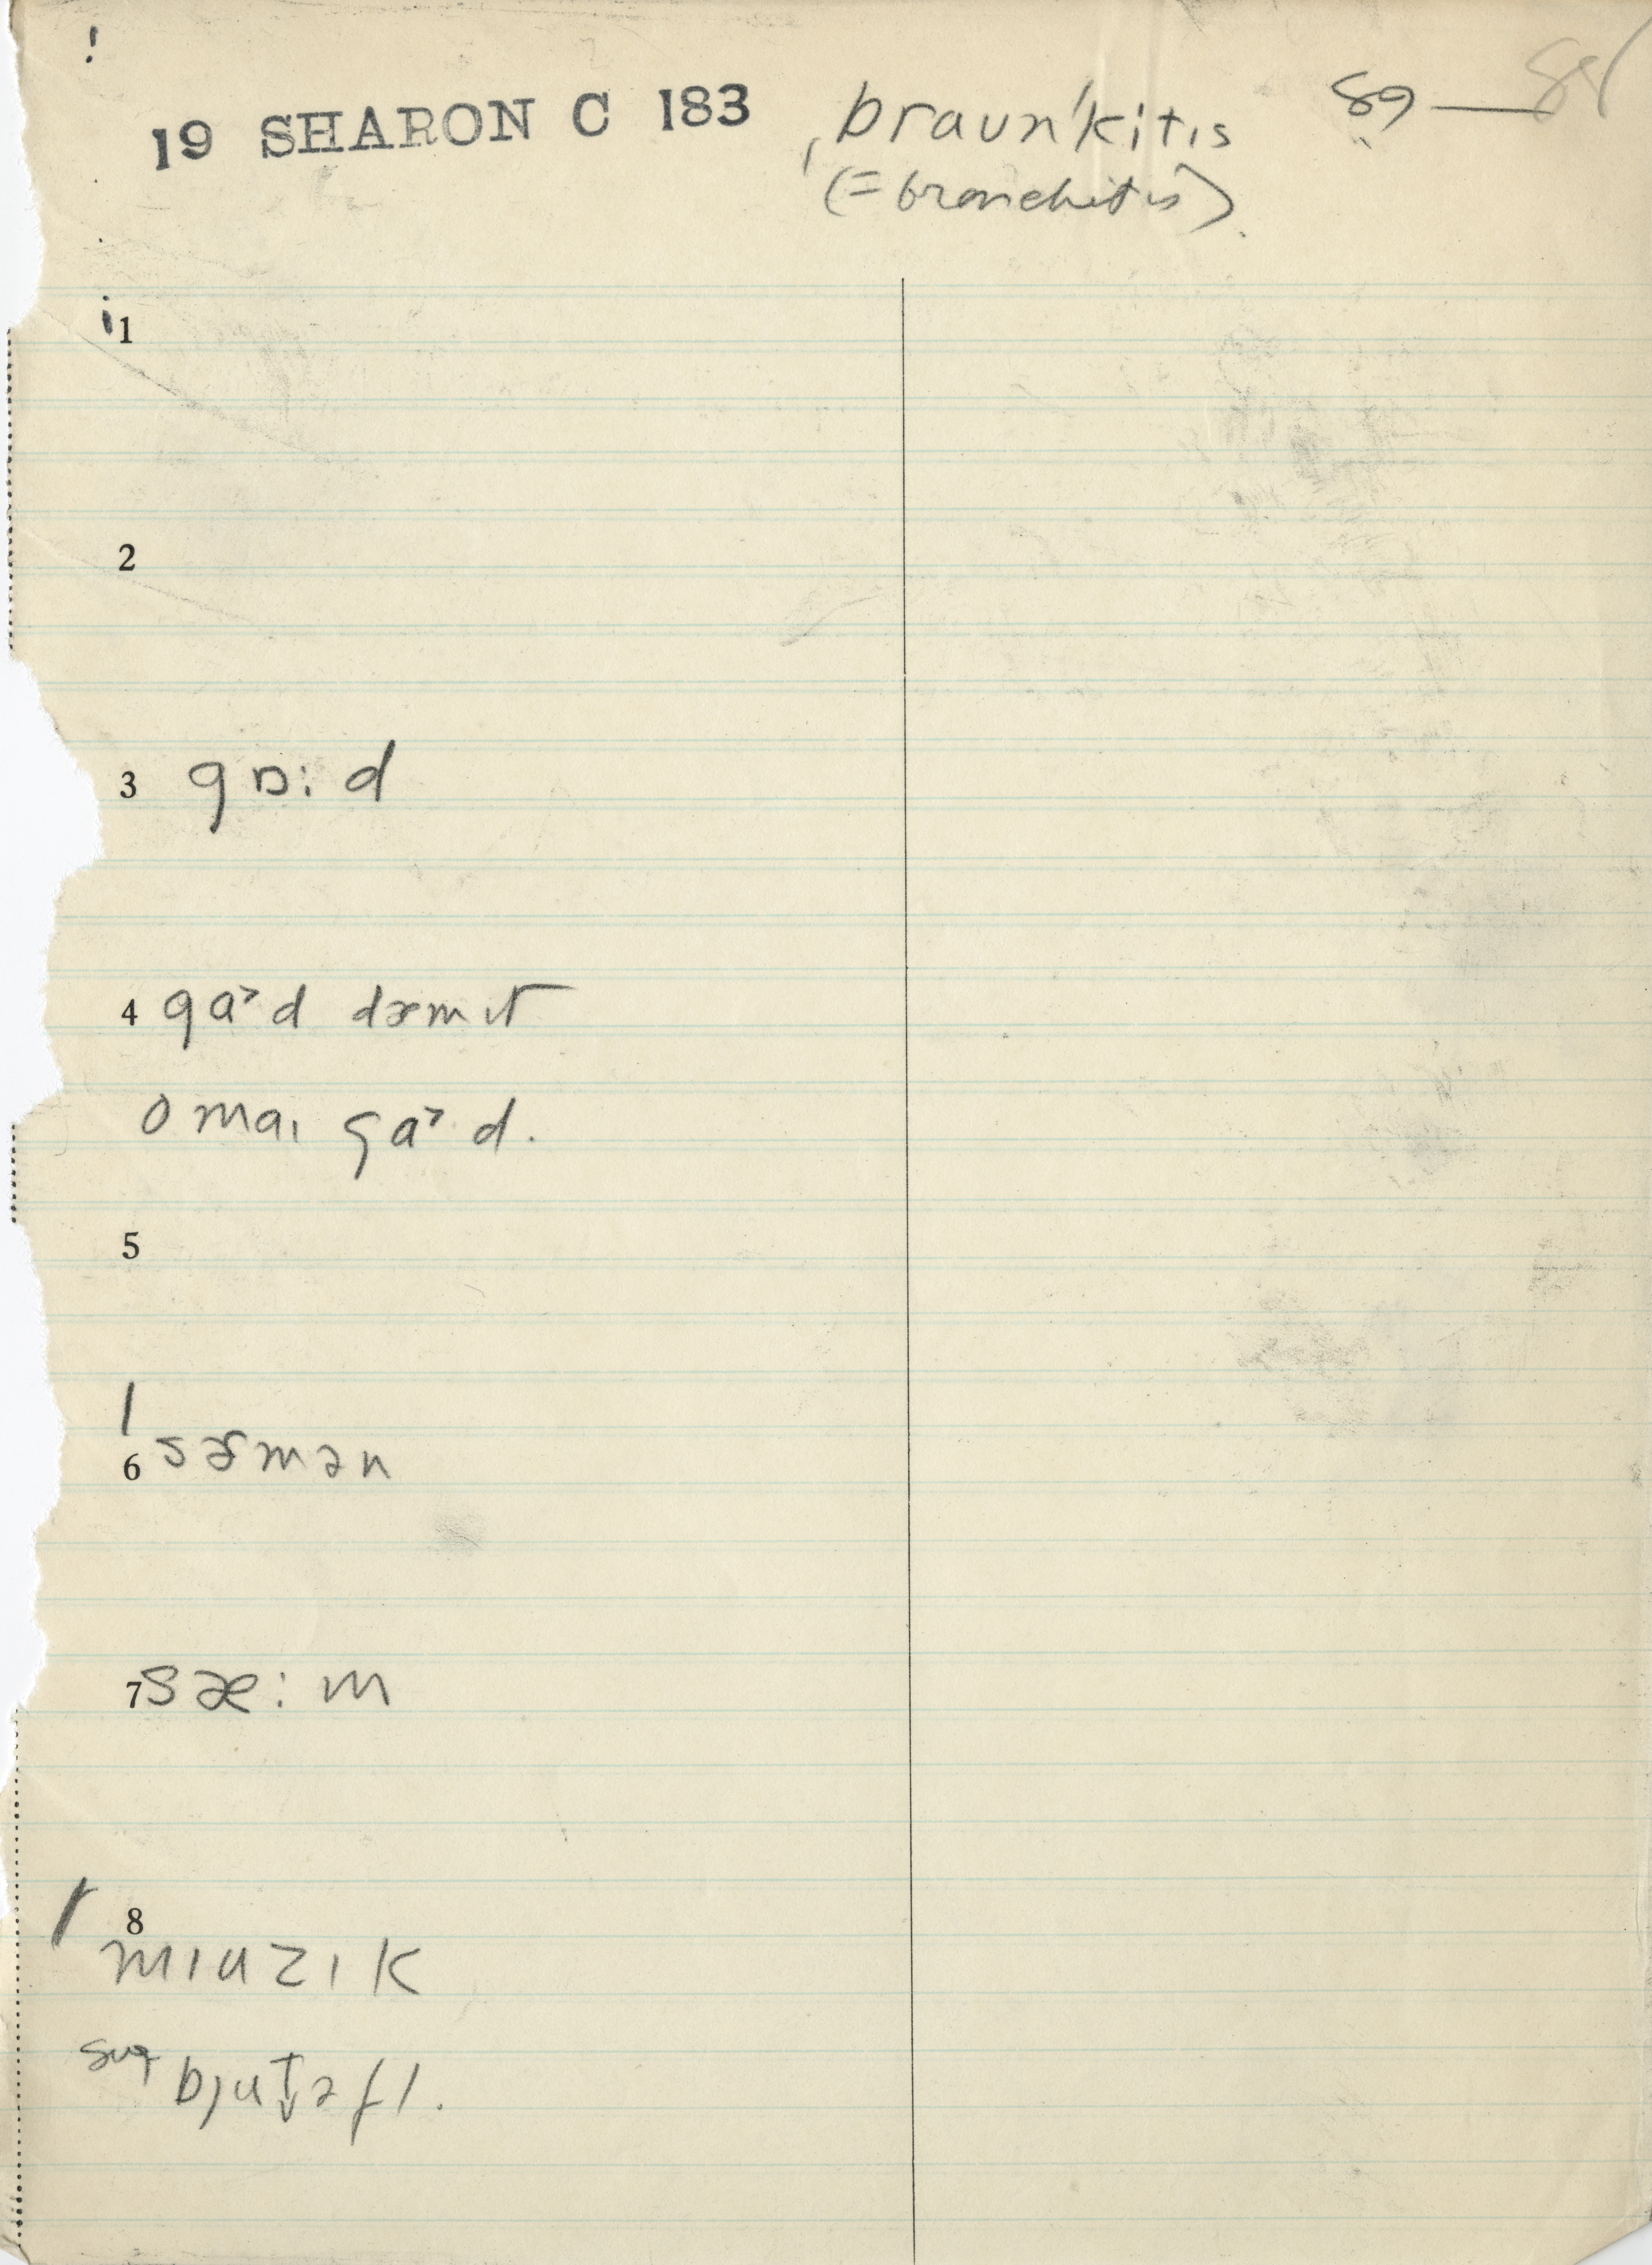 !
19 SHARON C 183 ˌbraʊn'kitɪs 89 —
(=bronchitis).
1
2
3 gɒ: d
4 ga˃d dæmɪt
o maɪ ga˃d.
5
6 sæmən
7 sæ: m
8
mɪuzɪk
sug bjut̬əfl.